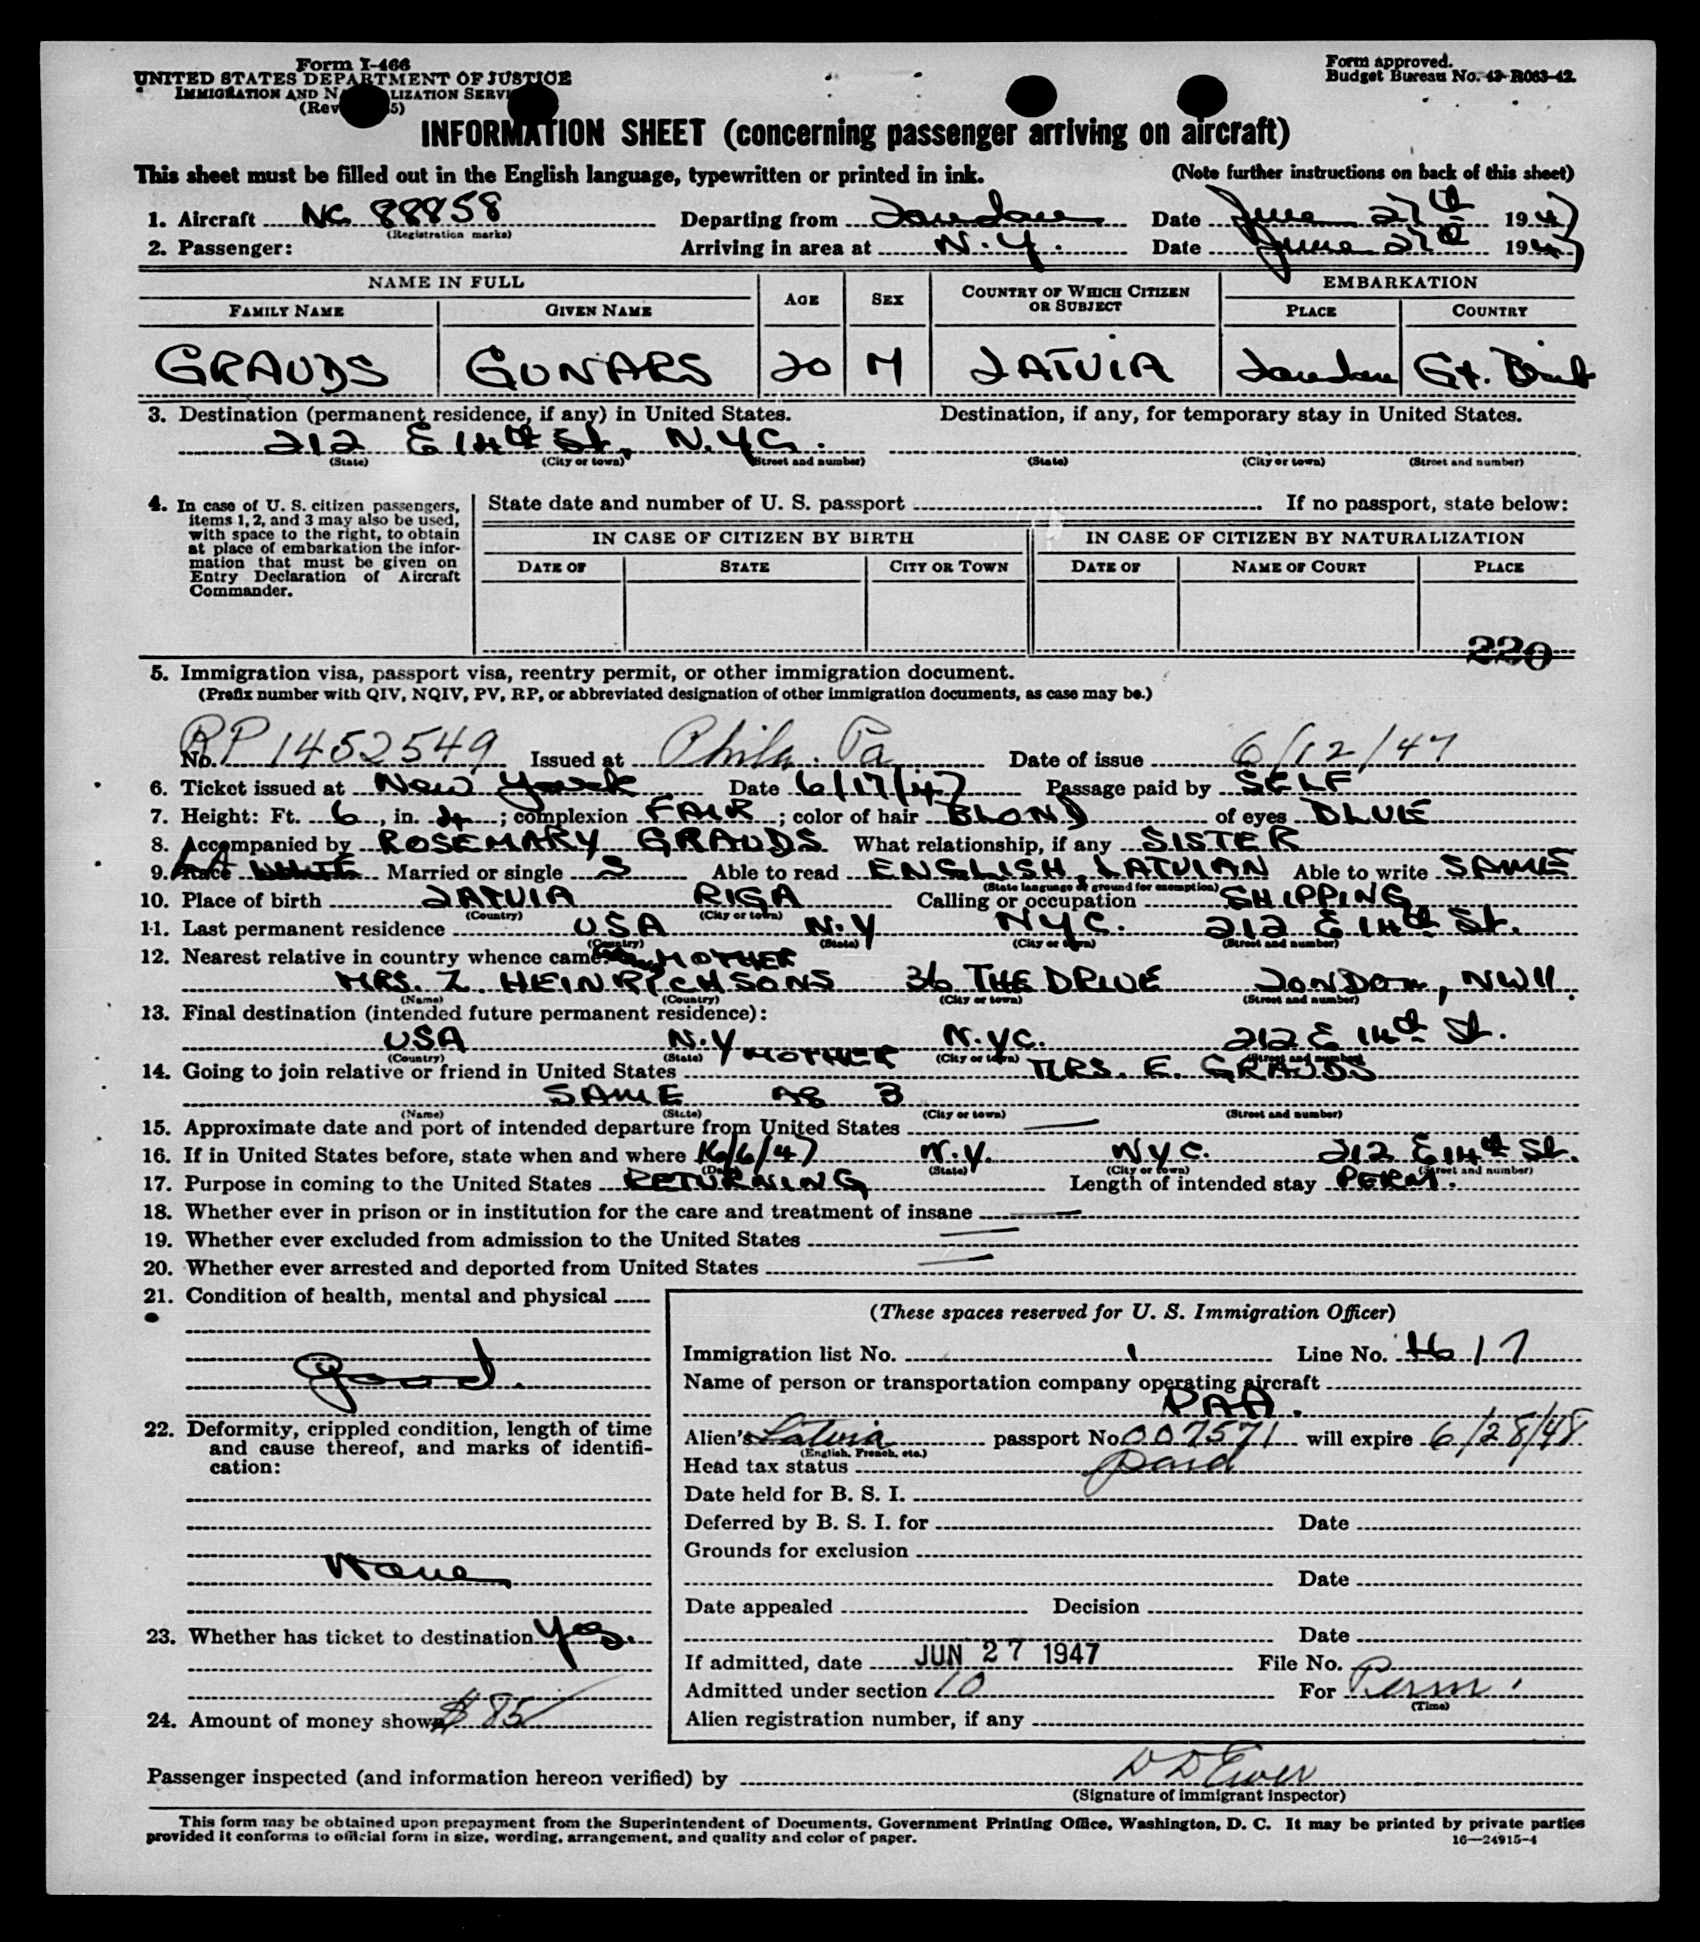 Form I-466
UNITED STATES DEPARTMENT OF JUSTICE
IMMIGRATION AND NATURALIZATION SERVICE
(Rev. 5)
Form approved.
Budget Bureau No. 43-R063-42.
INFORMATION SHEET (concerning passenger arriving on aircraft)
This sheet must be filled out in the English language, typewritten or printed in ink. (Note further instructions on back of this sheet)
1. Aircraft NC 88858 Departing from London Date June 27th 1947
(Registration marks)
2. Passenger: Arriving in area at N.Y. Date June 27th 1947
NAME IN FULL AGE SEX COUNTRY OF WHICH CITIZEN OR SUBJECT EMBARKATION
FAMILY NAME GIVEN NAME PLACE COUNTRY
GRAUDS GUNARS 20 M LATVIA London Gt. Brit
3. Destination (permanent residence, if any) in United States. Destination, if any, for temporary stay in United States.
212 E 14th St, N.Y.C.
(State) (City or town) (Street and number) (State) (City or town) (Street and number)
4. In case of U. S. citizen passengers, items 1, 2, and 3 may also be used, with space to the right, to obtain at place of embarkation the information that must be given on Entry Declaration of Aircraft Commander.
State date and number of U. S. passport If no passport, state below:
IN CASE OF CITIZEN BY BIRTH IN CASE OF CITIZEN BY NATURALIZATION
DATE OF STATE CITY OR TOWN DATE OF NAME OF COURT PLACE
220
5. Immigration visa, passport visa, reentry permit, or other immigration document.
(Prefix number with QIV, NQIV, PV, RP, or abbreviated designation of other immigration documents, as case may be.)
No. RP 1452549 Issued at Phila. Pa Date of issue 6/12/47
6. Ticket issued at New York Date 6/17/47 Passage paid by SELF
7. Height: Ft. 6, in. 4; complexion FAIR; color of hair BLOND of eyes BLUE
8. Accompanied by ROSEMARY GRAUDS What relationship, if any SISTER
9. Race WHITE Married or single S Able to read ENGLISH, LATVIAN Able to write SAME
(State language or ground for exemption)
10. Place of birth LATVIA RIGA Calling or occupation SHIPPING
(Country) (City or town)
11. Last permanent residence USA N.Y NYC. 212 E 14th St.
(Country) (State) (City or town) (Street and number)
12. Nearest relative in country whence came: MOTHER
MRS. Z. HEINRICHSONS 36 THE DRIVE LONDON, NW11.
(Name) (Country) (City or town) (Street and number)
13. Final destination (intended future permanent residence):
USA N.Y N.YC. 212 E 14th St.
(Country) (State) (City or town) (Street and number)
14. Going to join relative or friend in United States MOTHER MRS. E. GRAUDS
SAME AS 3
(Name) (State) (City or town) (Street and number)
15. Approximate date and port of intended departure from United States —
16. If in United States before, state when and where 16/6/47 N.Y. NYC. 212 E 14th St.
(Date) (State) (City or town) (Street and number)
17. Purpose in coming to the United States RETURNING Length of intended stay PERM.
18. Whether ever in prison or in institution for the care and treatment of insane —
19. Whether ever excluded from admission to the United States —
20. Whether ever arrested and deported from United States —
21. Condition of health, mental and physical
good.
22. Deformity, crippled condition, length of time and cause thereof, and marks of identification:
None
23. Whether has ticket to destination Yes.
24. Amount of money shown $85
(These spaces reserved for U. S. Immigration Officer)
Immigration list No. 1 Line No. 17
Name of person or transportation company operating aircraft
PAA.
Alien's Latvia passport No. 007571 will expire 6/28/48
(English, French, etc.)
Head tax status paid
Date held for B. S. I.
Deferred by B. S. I. for Date
Grounds for exclusion
Date
Date appealed Decision
Date
If admitted, date JUN 27 1947 File No.
Admitted under section 10 For Perm.
(Time)
Alien registration number, if any
Passenger inspected (and information hereon verified) by
(Signature of immigrant inspector)
This form may be obtained upon prepayment from the Superintendent of Documents, Government Printing Office, Washington, D. C. It may be printed by private parties
provided it conforms to official form in size, wording, arrangement, and quality and color of paper. 16—24915-4